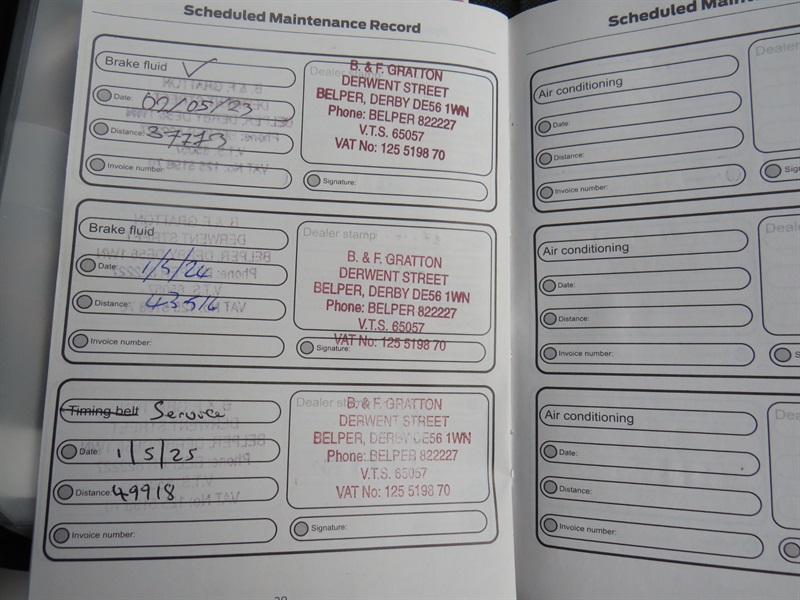 Scheduled Maintenance Record
Brake fluid ✓
Dealer stamp
Date: 02/05/23
Distance: 37773
Invoice number:
B. & F. GRATTON
DERWENT STREET
BELPER, DERBY DE56 1WN
Phone: BELPER 822227
V.T.S. 65057
VAT No: 125 5198 70
Signature:
Brake fluid
Dealer stamp
Date: 1/5/24
Distance: 43516
Invoice number:
B. & F. GRATTON
DERWENT STREET
BELPER, DERBY DE56 1WN
Phone: BELPER 822227
V.T.S. 65057
VAT No: 125 5198 70
Signature:
Timing belt Service
Dealer stamp
Date: 1/5/25
Distance: 49918
Invoice number:
B. & F. GRATTON
DERWENT STREET
BELPER, DERBY DE56 1WN
Phone: BELPER 822227
V.T.S. 65057
VAT No: 125 5198 70
Signature:
Scheduled Main
Air conditioning
Dealer
Date:
Distance:
Invoice number:
Sig
Air conditioning
Deale
Date:
Distance:
Invoice number:
S
Air conditioning
Dea
Date:
Distance:
Invoice number: